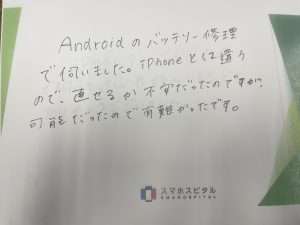 Androidのバッテリー修理
で伺いました。iPhoneとは違う
ので、直せるか不安だったのですが、
可能だったので有難かったです。
スマホスピタル
SMAHOSPITAL